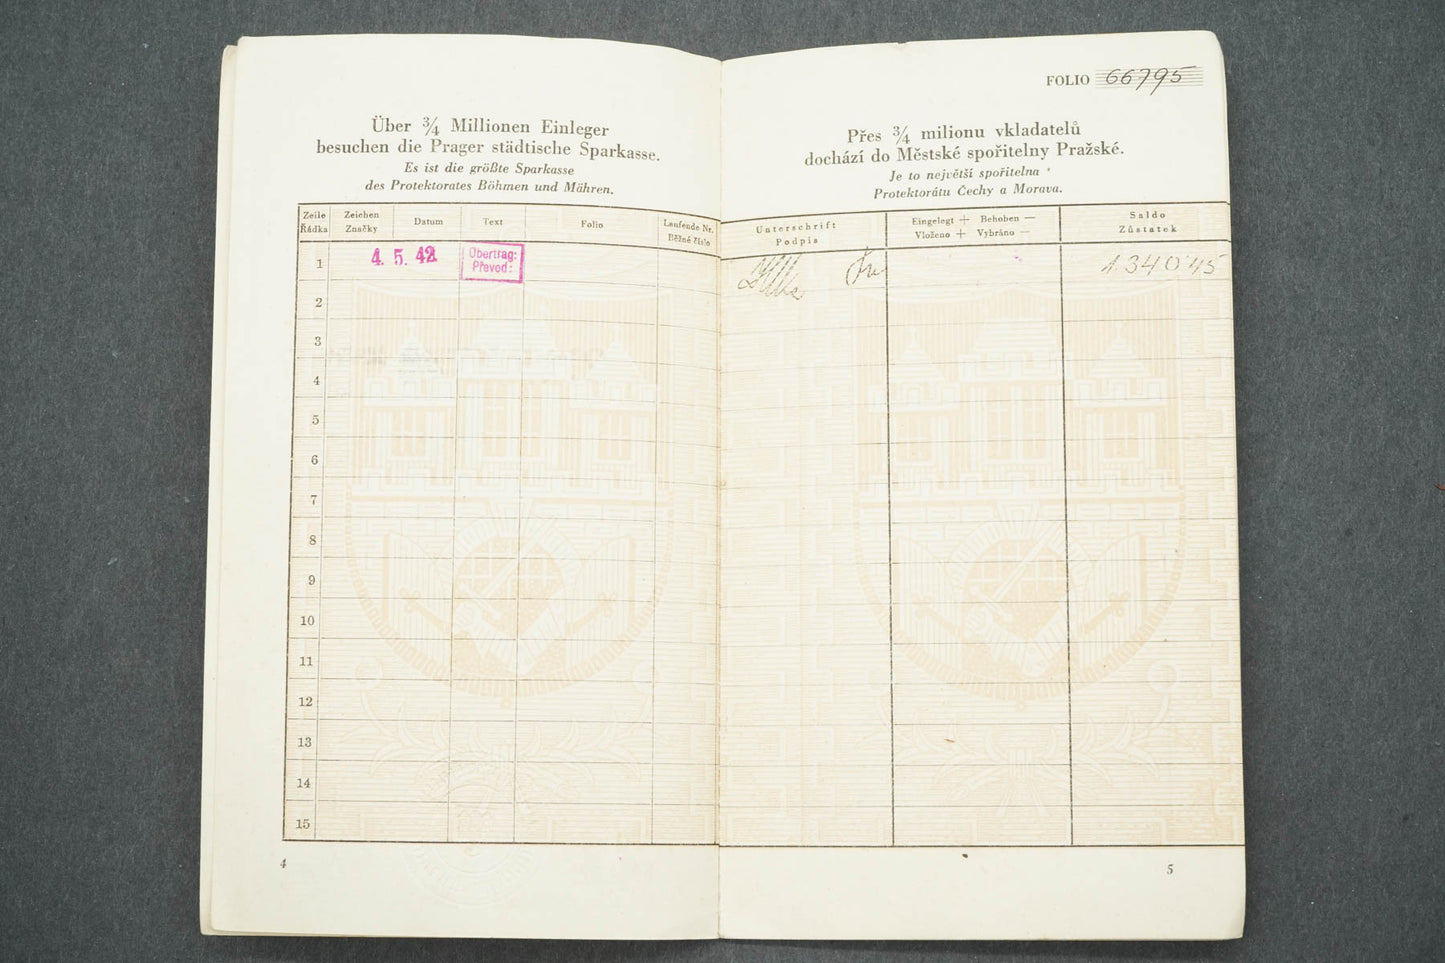 Über ¾ Millionen Einleger
besuchen die Prager städtische Sparkasse.
Es ist die größte Sparkasse
des Protektorates Böhmen und Mähren.
Zeile Řádka
Zeichen Značky
Datum
Text
Folio
Laufende Nr. Běžné číslo
1
4. 5. 42
Übertrag:
Převod:
2
3
4
5
6
7
8
9
10
11
12
13
14
15
4
FOLIO 66795
Přes ¾ milionu vkladatelů
dochází do Městské spořitelny Pražské.
Je to největší spořitelna
Protektorátu Čechy a Morava.
Unterschrift Podpis
Eingelegt + Behoben —
Vloženo + Vybráno —
Saldo
Zůstatek
1.340.45
5